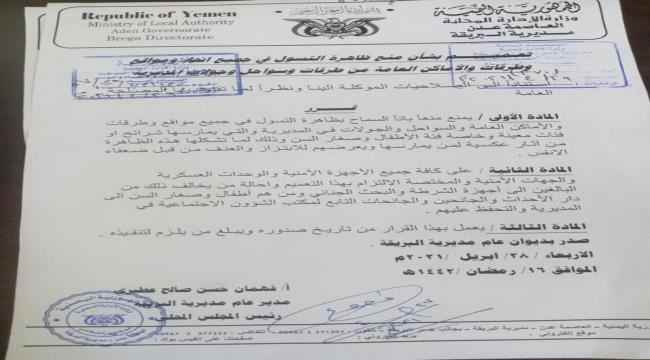 Republic of Yemen
Ministry of Local Authority
Aden Governorate
Brega Directorate
الجمهورية اليمنية
وزارة الإدارة المحلية
العاصمة عدن
مديرية البريقة
بشأن منع ظاهرة التسول في جميع انحاء ومواقع
وطرقات والأماكن العامة من طرقات وسواحل وجولات
الصلاحيات الموكلة الينا ونظراً لما
العامة
قـــرر
المادة الأولى / يمنع منعاً باتاً السماح بظاهرة التسول في جميع مواقع وطرقات
والأماكن العامة والسواحل والجولات في المديرية والتي يمارسها شرائح او
فئات معينة وخاصة فئة الأطفال وصغار السن وذلك لما تشكلها هذه الظاهرة
من اثار عكسية لمن يمارسها ويعرضهم للابتزاز والعنف من قبل ضعفاء
الانفس .
المادة الثانية / على كافة جميع الأجهزة الأمنية والوحدات العسكرية
والجهات الأمنية والمختصة الالتزام بهذا التعميم واحالة من يخالف ذلك من
البالغين الى أجهزة الشرطة والبحث الجنائي ومن هم اطفال وصغار السن الى
دار الأحداث والجانحين والجانحات التابع لمكتب الشؤون الاجتماعية في
المديرية والتحفظ عليهم .
المادة الثالثة / يعمل بهذا القرار من تاريخ صدوره ويبلغ من يلزم لتنفيذه .
صدر بديوان عام مديرية البريقة .
الاربعاء / ٢٨ / ابريل / ٢٠٢١م
الموافق ١٦/ رمضان /١٤٤٢هـ
أ/ فهمان حسن صالح عطيري
مدير عام مديرية البريقة
رئيس المجلس المحلي